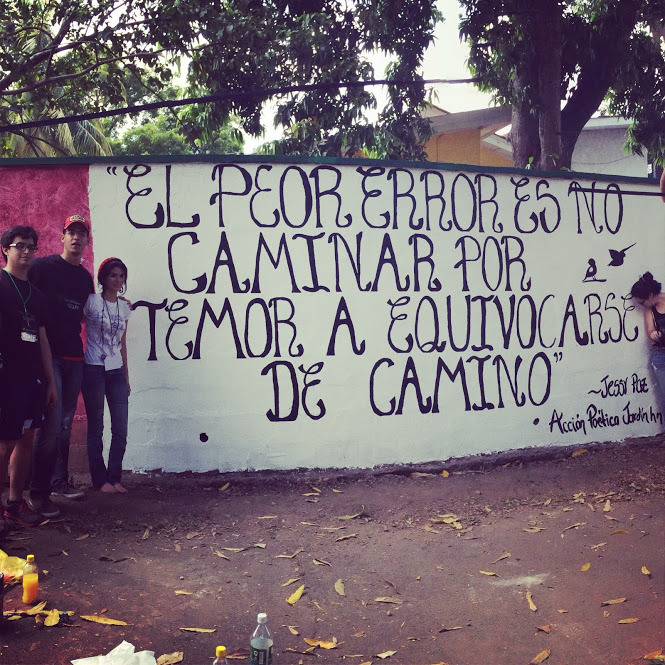 "EL PEOR ERROR ES NO
CAMINAR POR
TEMOR A EQUIVOCARSE
DE CAMINO"
~JESSY PAZ
Acción Poética Jardín hn